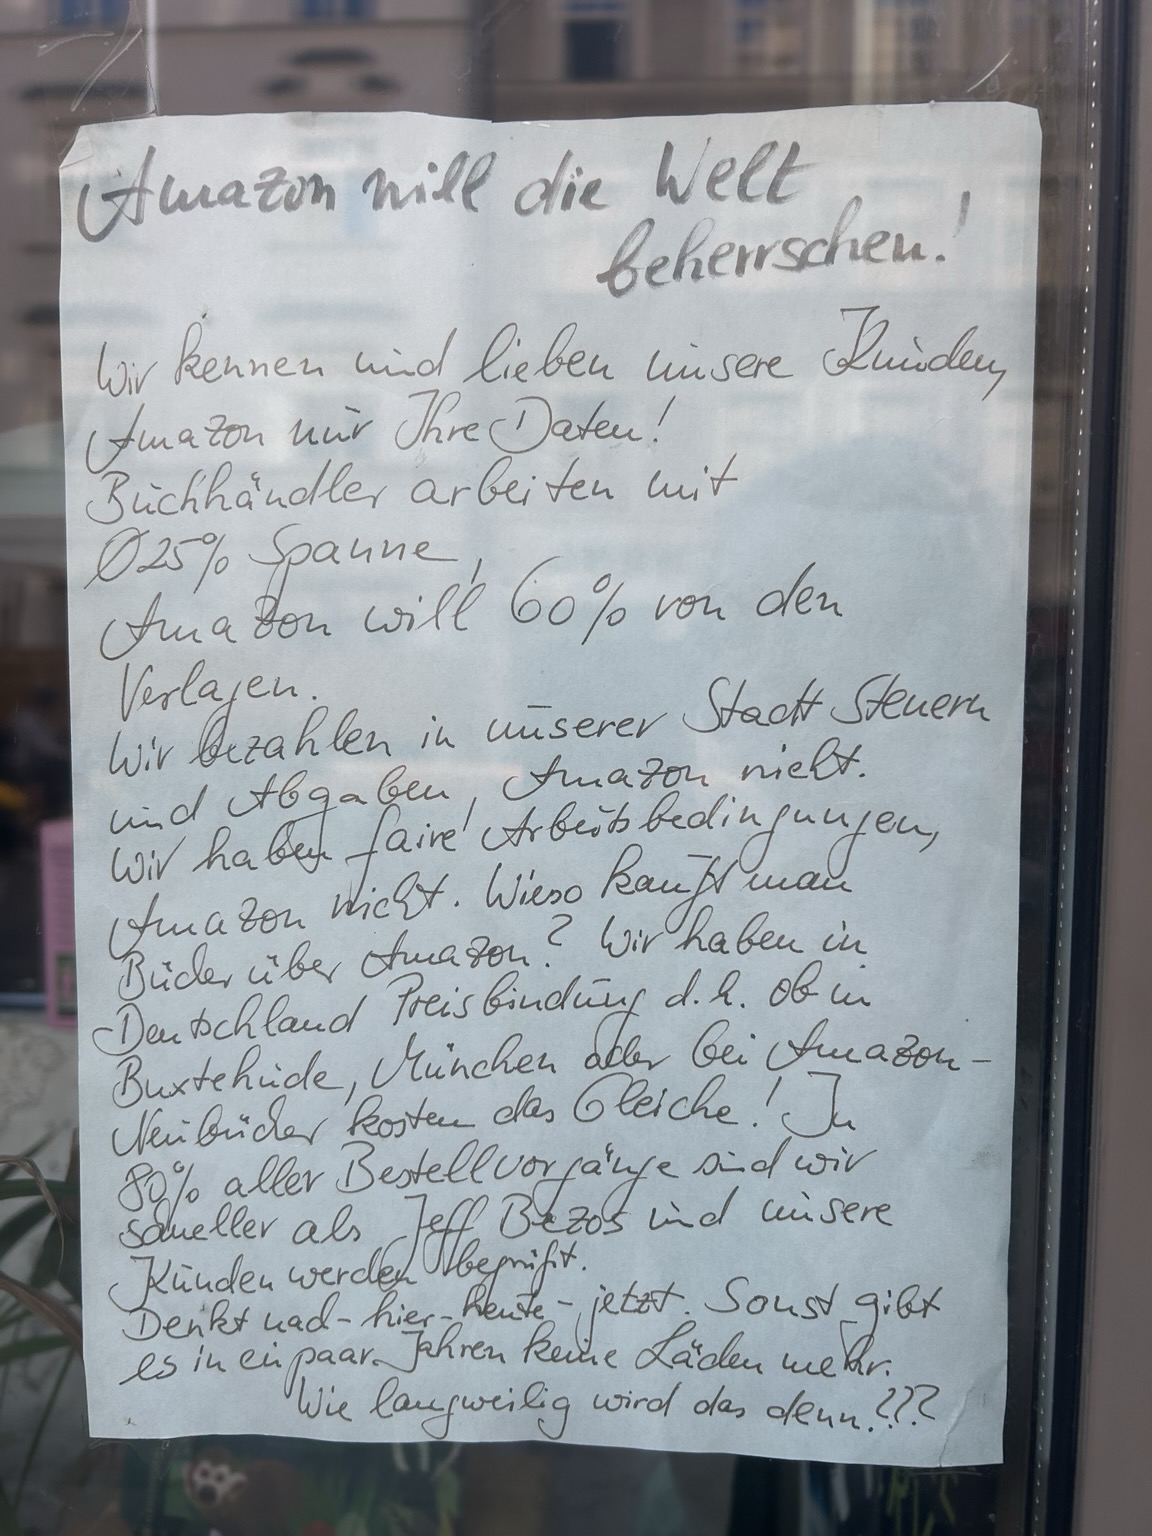 Amazon will die Welt
beherrschen!
Wir kennen und lieben unsere Kunden,
Amazon nur Ihre Daten!
Buchhändler arbeiten mit
Ø25% Spanne,
Amazon will 60% von den
Verlagen.
Wir bezahlen in unserer Stadt Steuern
und Abgaben, Amazon nicht.
Wir haben faire Arbeitsbedingungen,
Amazon nicht. Wieso kauft man
Bücher über Amazon? Wir haben in
Deutschland Preisbindung d.h. ob in
Buxtehude, München oder bei Amazon-
Neubücher kosten das Gleiche! In
80% aller Bestellvorgänge sind wir
schneller als Jeff Bezos und unsere
Kunden werden begrüßt.
Denkt nach-hier-heute-jetzt. Sonst gibt
es in ein paar Jahren keine Läden mehr.
Wie langweilig wird das denn.???